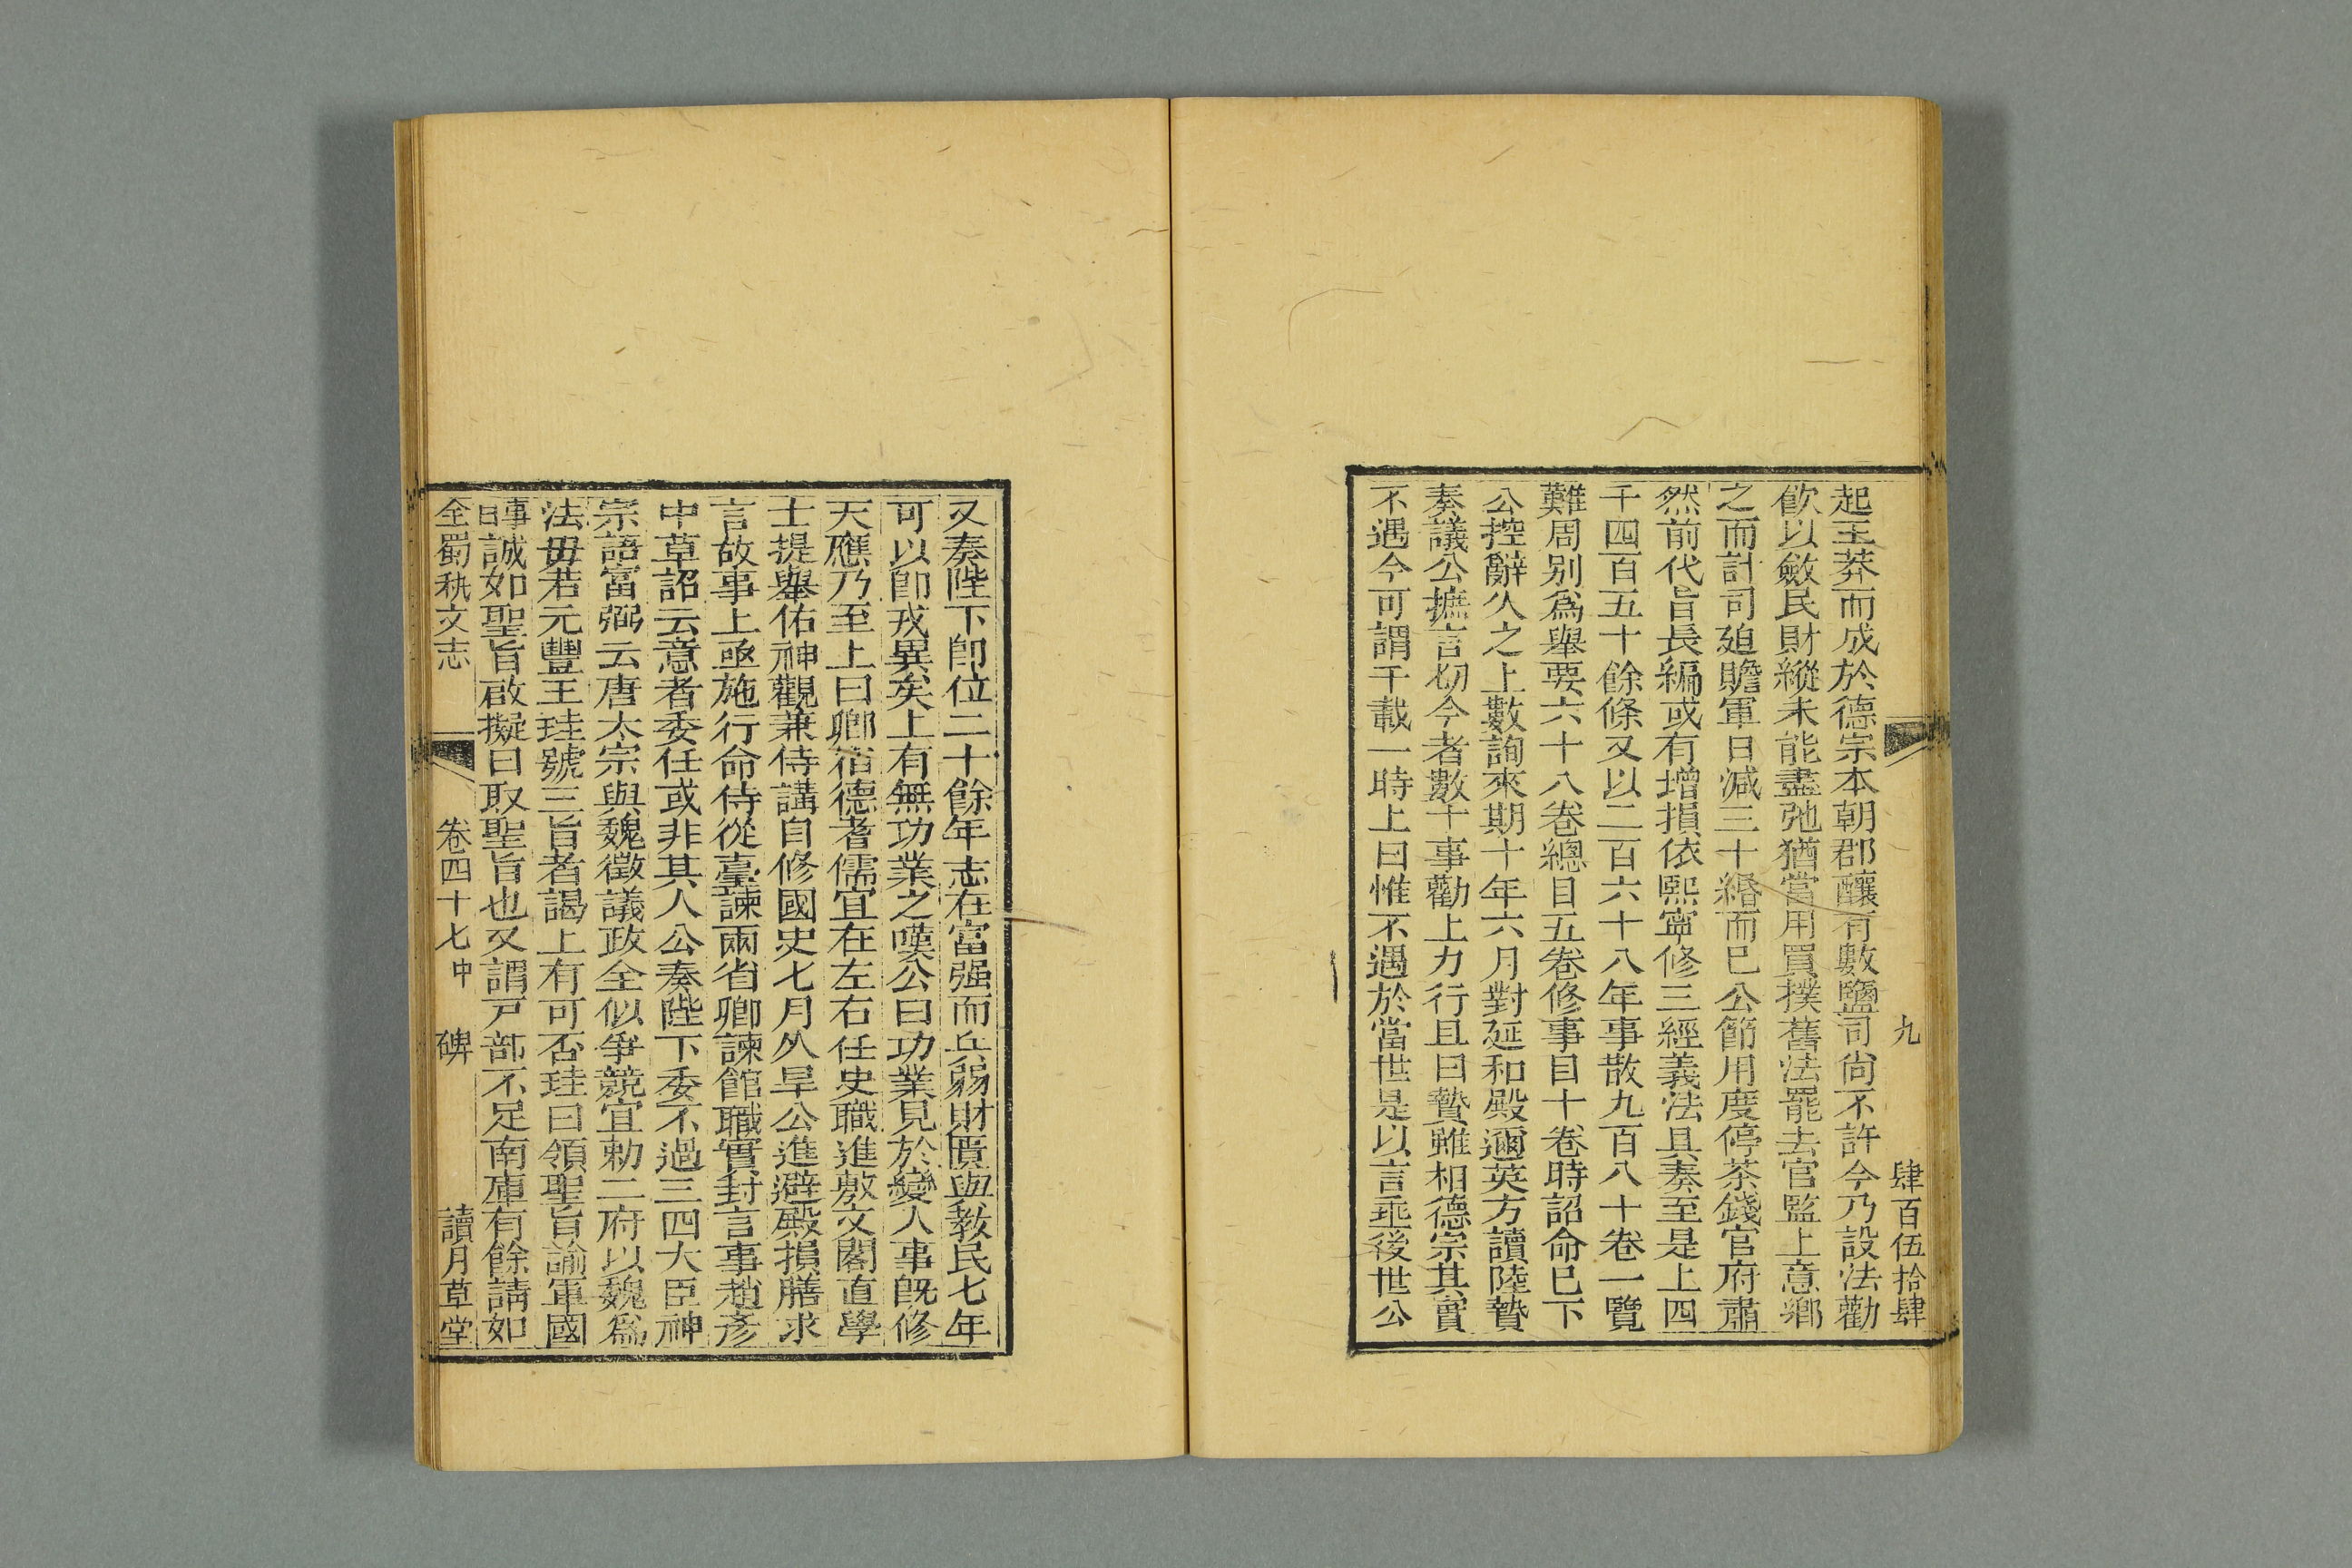 九　肆百伍拾肆
起王莽而成於德宗本朝郡釀有數鹽司尙不許今乃設法勸
飮以斂民財縱未能盡弛猶當用買撲舊法罷去官監上意鄉
之而計司廹贍軍日減三十緡而已公節用度停茶錢官府肅
然前代旨長編或有增損依熙寧修三經義法具奏至是上四
千四百五十餘條又以二百六十八年事散九百八十卷一覽
難周别爲舉要六十八卷總目五卷修事目十卷時詔命巳下
公控辭久之上數詢來期十年六月對延和殿邇英方讀陸贄
奏議公摭言切今者數十事勸上力行且曰贄雖相德宗其實
不遇今可謂千載一時上曰惟不遇於當世是以言垂後世公
又奏陛下卽位二十餘年志在富强而兵弱財匱與教民七年
可以卽戎異矣上有無功業之嘆公曰功業見於變人事旣修
天應乃至上曰卿宿德耆儒宜在左右任史職進敷文閣直學
士提舉佑神觀兼侍講自修國史七月久旱公進避殿損膳求
言故事上亟施行命侍從臺諫兩省卿諫館職實封言事趙彥
中草詔云意者委任或非其人公奏陛下委不過三四大臣神
宗語富弼云唐太宗與魏徵議政全似爭競宜勅二府以魏爲
法毋若元豐王珪號三旨者謁上有可否珪曰領聖旨諭軍國
事曰誠如聖旨啟擬曰取聖旨也又謂戸部不足南庫有餘請如
全蜀秇文志　卷四十七中　碑　讀月草堂